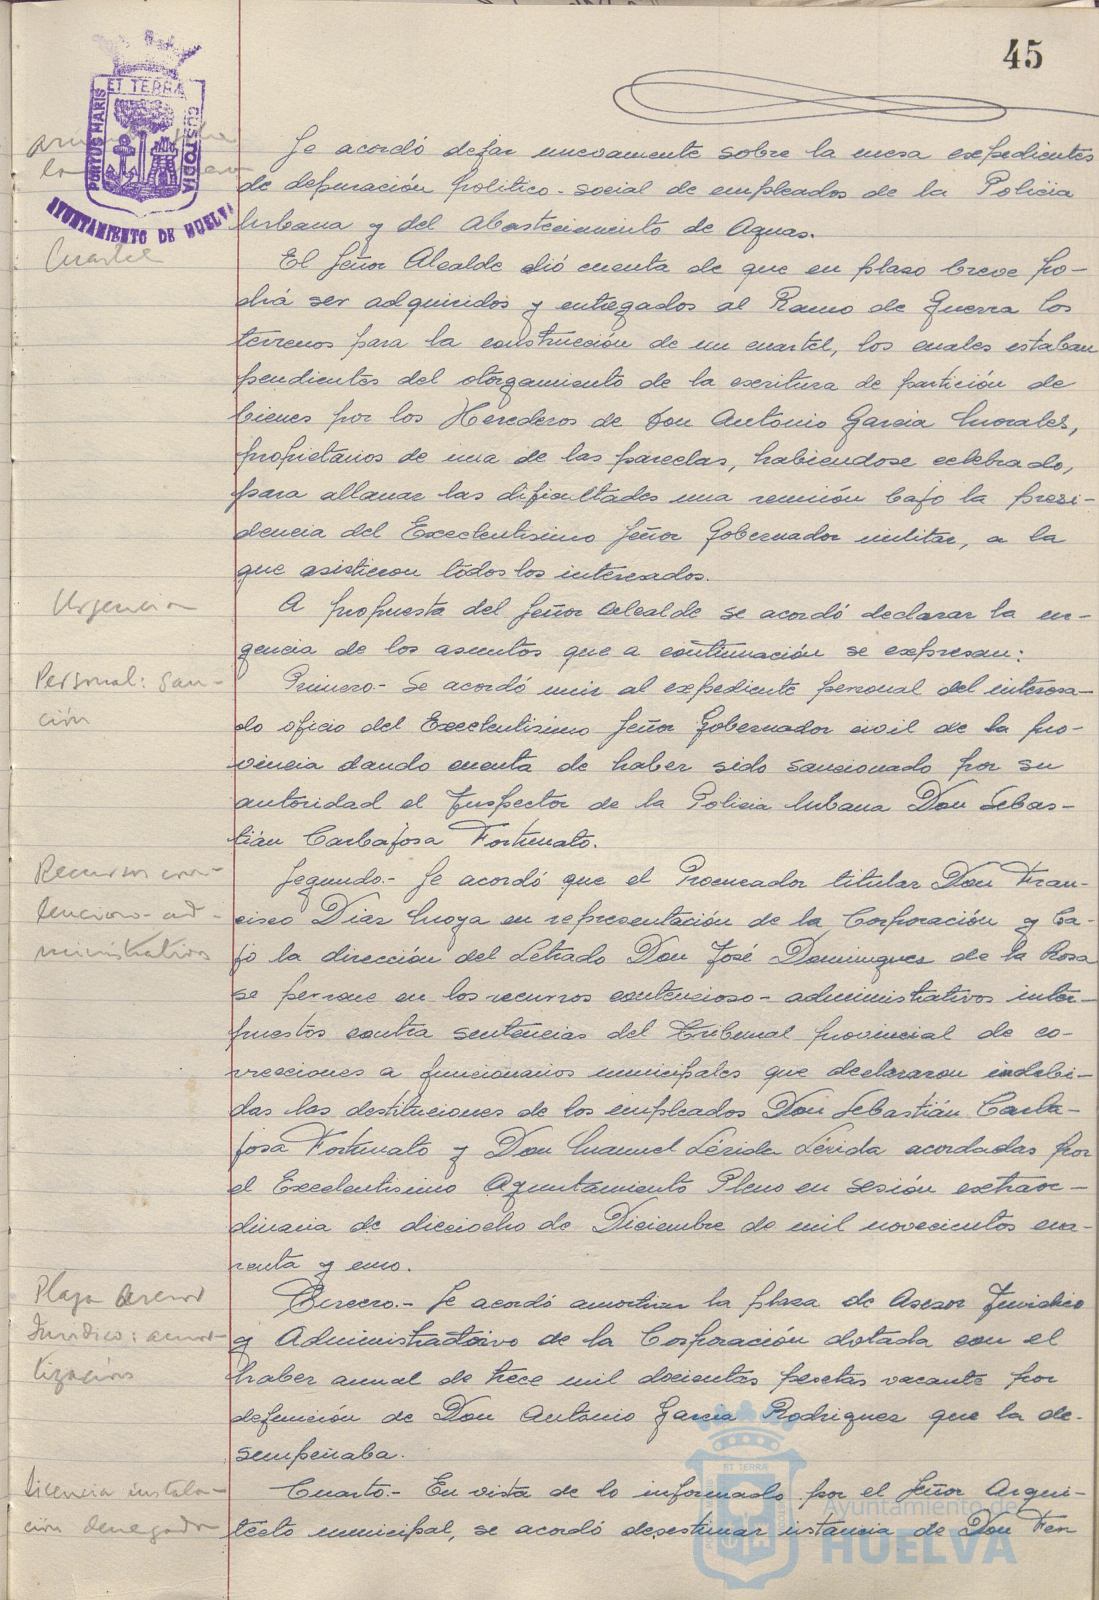 45
PORTUS MARIS ET TERRA CUSTODIA
AYUNTAMIENTO DE HUELVA
Se acordó dejar nuevamente sobre la mesa expedientes
de depuración politico-social de empleados de la Policia
Urbana y del Abastecimiento de Aguas.
Cuartel
El Señor Alcalde dió cuenta de que en plazo breve po-
drá ser adquiridos y entregados al Ramo de Guerra los
terrenos para la construcción de un cuartel, los cuales estaban
pendientes del otorgamiento de la escritura de partición de
bienes por los Herederos de Don Antonio Garcia Morales,
propietarios de una de las parcelas, habiendose celebrado,
para allanar las dificultades una reunión bajo la presi-
dencia del Excelentisimo Señor Gobernador militar, a la
que asistieron todos los interesados.
Urgencia
A propuesta del Señor Alcalde se acordó declarar la ur-
gencia de los asuntos que a continuación se expresan:
Personal: san-
ción
Primero.- Se acordó unir al expediente personal del interesa-
do oficio del Excelentisimo Señor Gobernador civil de la pro-
vincia dando cuenta de haber sido sancionado por su
autoridad el Inspector de la Policia Urbana Don Sebas-
tián Carbajosa Fortunato.
Recursos con-
tencioso-ad-
ministrativos
Segundo.- Se acordó que el Procurador titular Don Fran-
cisco Diaz Moya en representación de la Corporación y ba-
jo la dirección del Letrado Don José Dominguez de la Rosa
se persone en los recursos contencioso-administrativos inter-
puestos contra sentencias del Tribunal provincial de co-
rrecciones a funcionarios municipales que declararon indebi-
das las destituciones de los empleados Don Sebastián Carba-
josa Fortunato y Don Manuel Lérida Lérida acordadas por
el Excelentisimo Ayuntamiento Pleno en sesión extraor-
dinaria de dieciocho de Diciembre de mil novecientos cua-
renta y uno.
Plaza Asesor
Juridico: amor-
tización
Tercero.- Se acordó amortizar la plaza de Asesor Juridico
y Administrativo de la Corporación dotada con el
haber anual de trece mil docientas pesetas vacante por
defunción de Don Antonio Garcia Rodriguez que la de-
sempeñaba.
Licencia instala-
ción denegada
Cuarto.- En vista de lo informado por el Señor Arqui-
tecto municipal, se acordó desestimar instancia de Don Fer
Ayuntamiento de
HUELVA